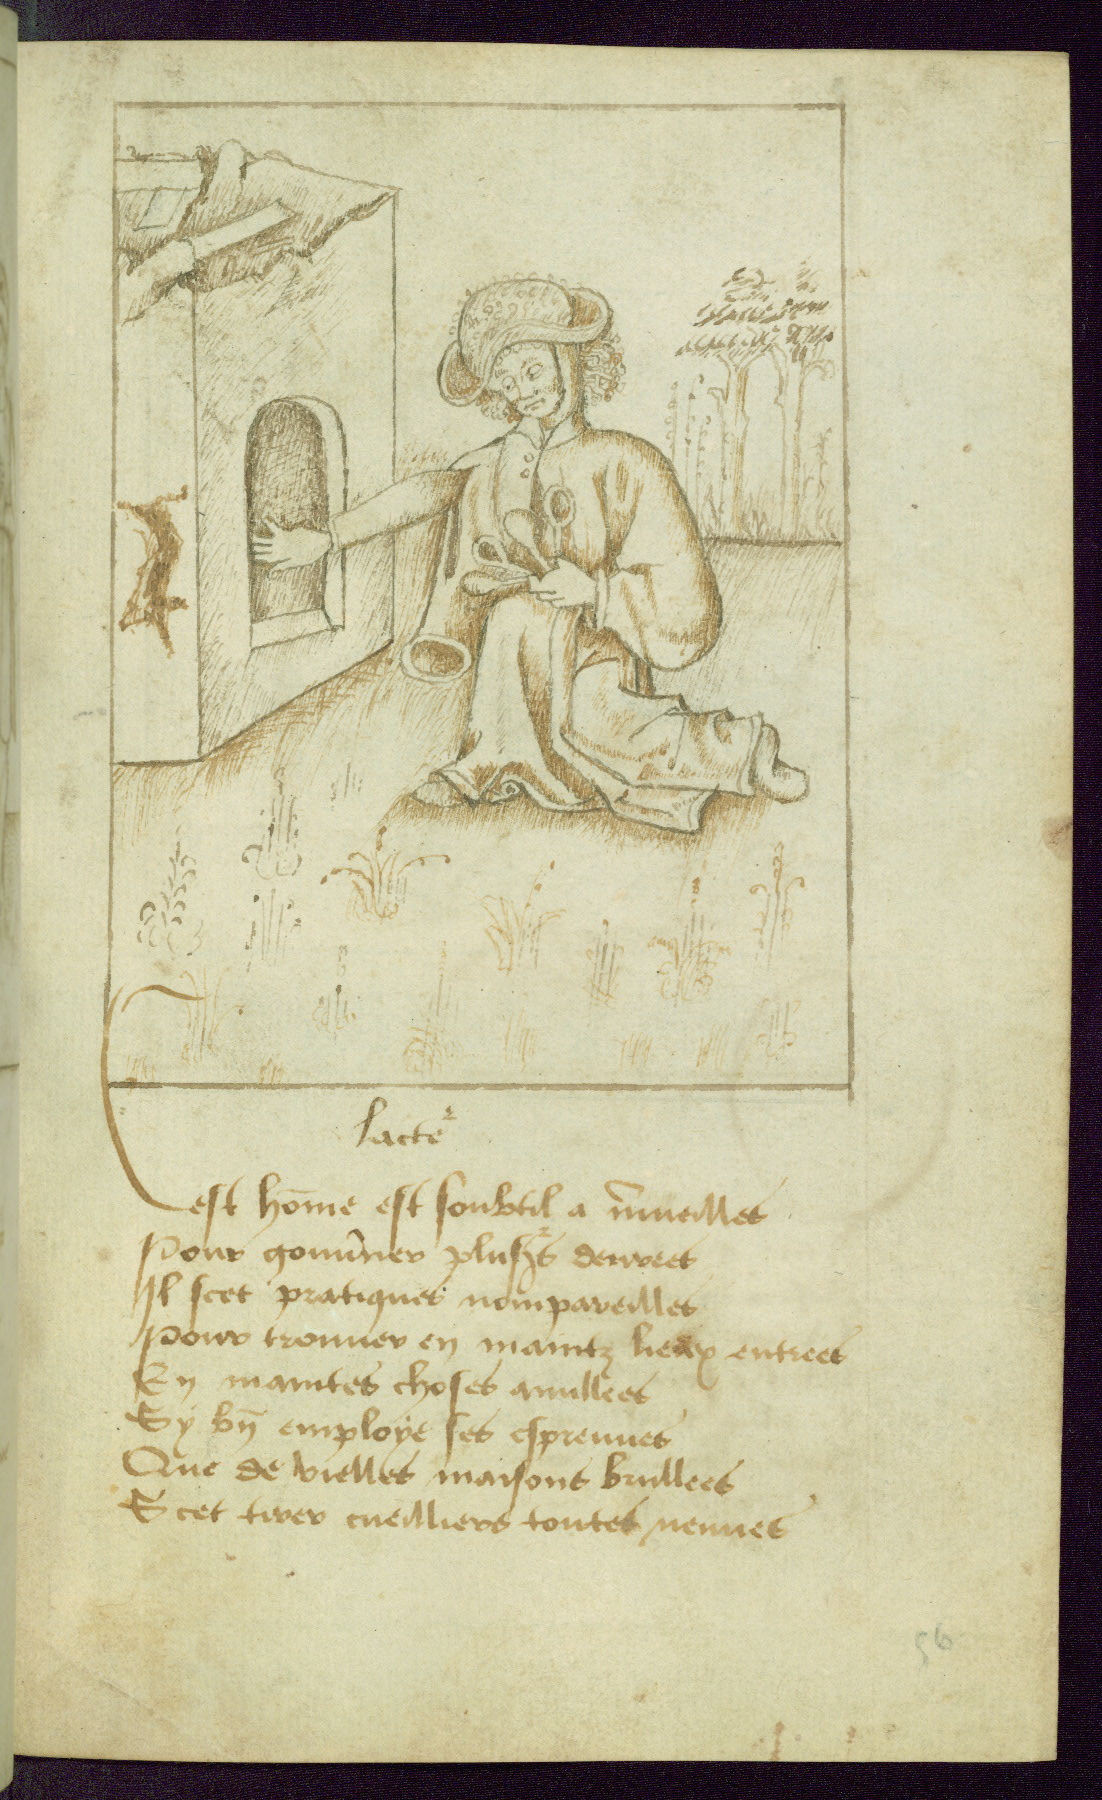 lacteᷣ
Cest hōme est soubtil a m̃ueilles
Pour gouũner plusr̃s denrees
Il scet pratiques nompareilles
Pour trouuer en maintz lieux entrees
En maintes choses anullees
Sy bñ employe ses espreuues
Que de vielles maisons brullees
Scet tirer cueilliers toutes neuues
56